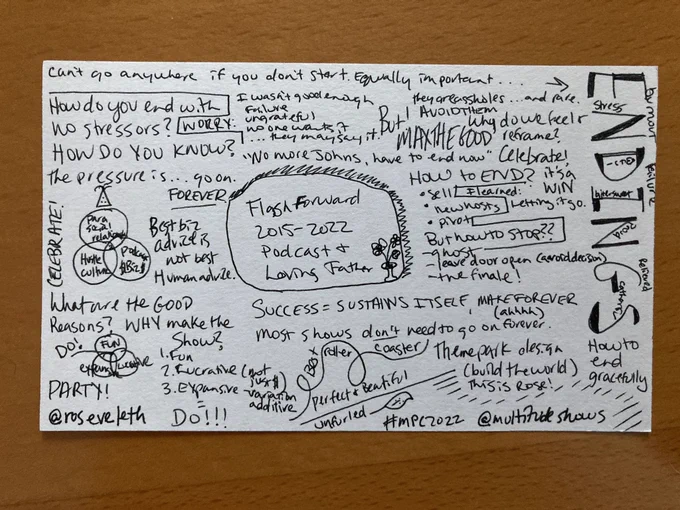 can't go anywhere if you don't start. Equally important....
ENDINGS
stress
by mom
failure
Guilt
bittersweet
Proud
Relieved
How to
end
gracefully
How do you end with
no stressors?
HOW DO YOU KNOW?
the pressure is... go on.
FOREVER
WORRY:
I wasn't good enough
Failure
ungrateful
no one wants it
... they may say it.
But!
they are assholes ... and rare.
AVOID THEM
MAX THE GOOD
why do we feel
reframe?
"No more Johns, have to end now"
Celebrate!
it's a
WIN
HOW TO END?
• sell
I learned:
• new hosts
Letting it go.
• pivot
But how to STOP??
- ghost
- leave door open (avoid decision)
- the finale!
CELEBRATE!
Para
social
relationships
Hustle
culture
Podcast
Best biz
advize is
not best
Human advize.
Flash Forward
2015-2022
Podcast &
Loving Father
What are the GOOD
Reasons? WHY make the
Show?
DO!
FUN
expansive
lucrative
1. Fun
2. Lucrative (not
just $)
3. Expansive - variation
additive
PARTY!
DO!!!
SUCCESS = SUSTAINS ITSELF, MAKE FOREVER
(ahhhh)
most shows don't need to go on forever.
roller
coaster
perfect & beautiful
unfurled
Theme park design
(build the world)
This is ROSE!
@roseveleth
#MPC2022
@multitudeshows